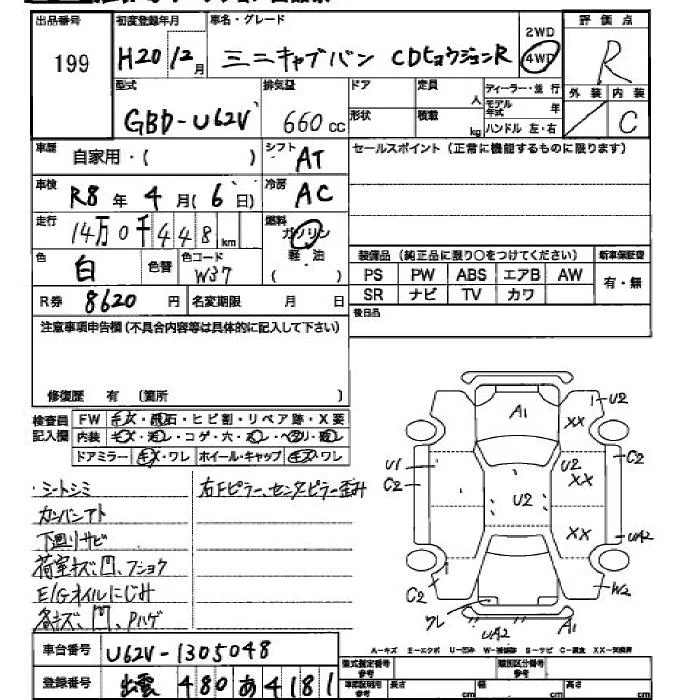 出品番号 初度登録年月 車名・グレード 2WD 評価点
199 H20 12月 ミニキャブバン CDヒョウジュンR 4WD R
型式 排気量 ドア 定員 人 ディーラー・並行 外装 内装
GBD-U62V 660cc 形状 積載 kg モデル年式 年 ハンドル 左・右 C
車歴 自家用・( ) シフト AT セールスポイント(正常に機能するものに限ります)
車検 R8年4月(6日) 冷房 AC
走行 14万0千448km 燃料 ガソリン
色 白 色替 色コード W37 軽・油 ( ) 装備品(純正品に限り○をつけてください) 新車保証書
PS PW ABS エアB AW 有・無
R券 8620円 名変期限 月 日 SR ナビ TV カワ
注意事項申告欄(不具合内容等は具体的に記入して下さい) 後日品
修復歴 有 (箇所 )
検査員 FW キズ・飛石・ヒビ割・リペア跡・X要
記入欄 内装 キズ・・コゲ・穴・・・
ドアミラー キズ・ワレ ホイール・キャップ キズ・ワレ
・シートシミ
カンバンアト
下廻りサビ
荷室キズ、凹、フショク
E/Gオイルにじみ
各キズ、凹、Pハゲ
右Fピラー、センターピラー歪み
A1 XX U2
U1 C2 U2 XX C2
U2
XX UA2
C2 W2
ワレ UA2 A1
A-キズ E-エクボ U-凹み W-補修跡 S-サビ C-腐食 XX-交換済
車台番号 U62V-1305048 型式指定番号 参考 類別区分番号 参考
登録番号 出雲 480 あ 4181 車庫証明用 参考 長さ cm 幅 cm 高さ cm